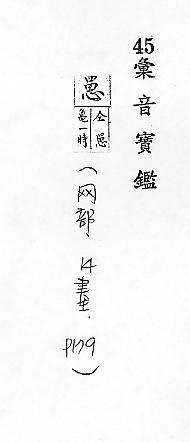 45彙音寶鑑
罳
仝罳
龜一時
(网部、14畫、P179)